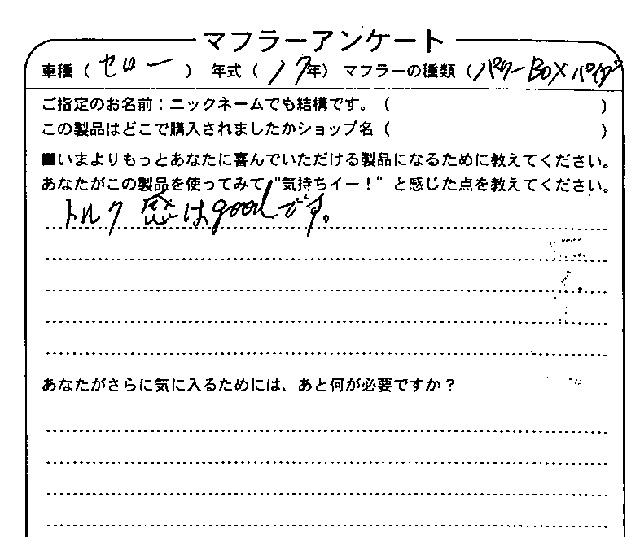 マフラーアンケート
車種（セロー） 年式（17年）マフラーの種類（パワーBOXパイプ）
ご指定のお名前：ニックネームでも結構です。（ ）
この製品はどこで購入されましたかショップ名（ ）
■いまよりもっとあなたに喜んでいただける製品になるために教えてください。
あなたがこの製品を使ってみて"気持ちイー！"と感じた点を教えてください。
トルク感はgoodです。
あなたがさらに気に入るためには、あと何が必要ですか？